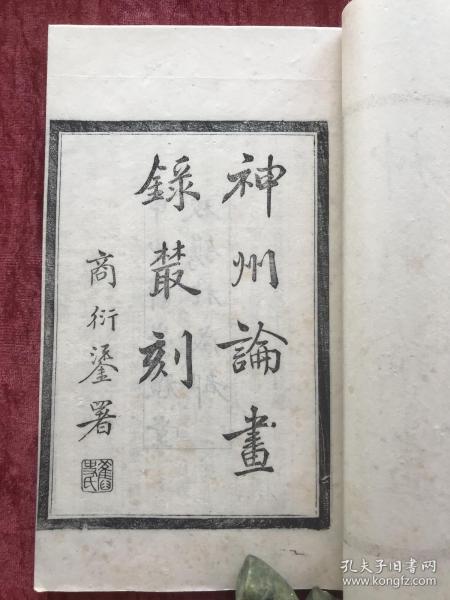 神州論畫
錄叢刻
商衍鎏署
孔夫子旧书网
www.kongfz.com